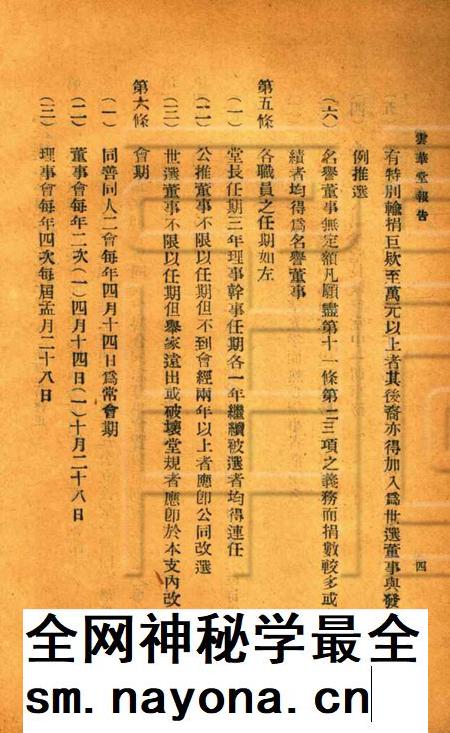 雲華堂報告
四
有特別輸捐巨欵至萬元以上者其後裔亦得加入爲世選董事與發
例推選
(六) 名譽董事無定額凡願盡第十一條第二三項之義務而捐數較多或
績者均得爲名譽董事
第五條 各職員之任期如左
(一) 堂長任期三年理事幹事任期各一年繼續被選者均得連任
(二) 公推董事不限以任期但不到會經兩年以上者應卽公同改選
(三) 世選董事不限以任期但舉家遠出或破壞堂規者應卽於本支內改
第六條 會期
(一) 同善同人二會每年四月十四日爲常會期
(二) 董事會每年二次(一)四月十四日(一)十月二十八日
(三) 理事會每年四次每屆孟月二十八日
全网神秘学最全
sm.nayona.cn